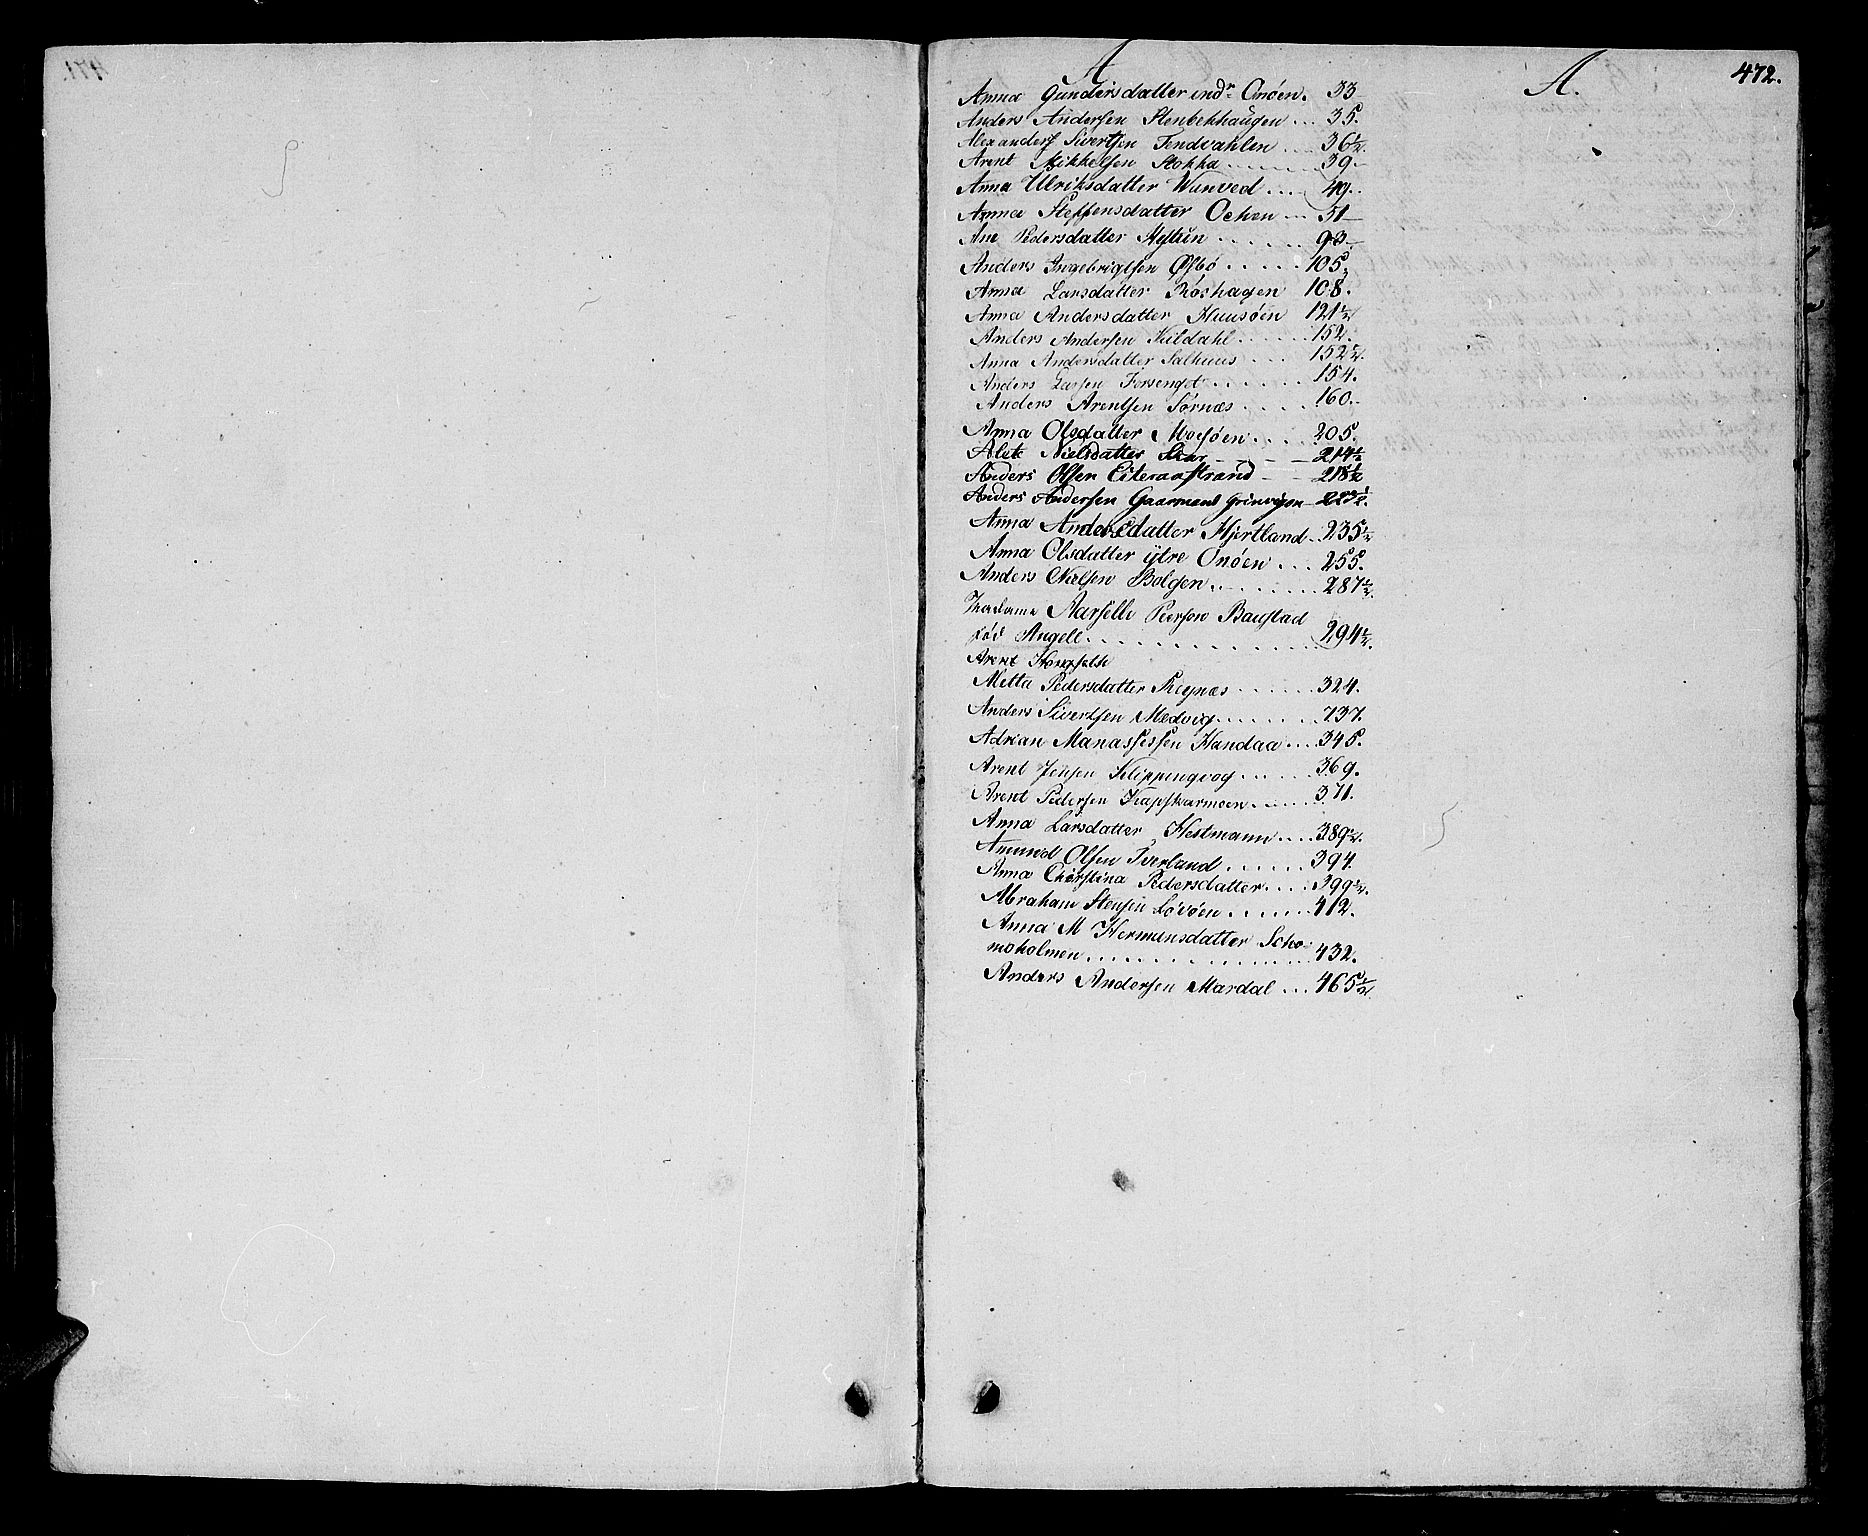 472.
A
A.
Anna Gundersdatter indr Onöen. 33
Anders Andersen Stenbekhaugen ... 35.
Alexander Sivertsen Tendvahlen ... 36½.
Arent Mikkelsen Stokka ...... 39
Anna Ulriksdatter Wunved .... 49.
Anna Steffensdatter Ochen ... 51
Ane Pedersdatter Aystun ...... 93
Anders Ingebrigtsen Øsbö ..... 105.
Anna Larsdatter Röshagen 108.
Anna Andersdatter Huusöen 121½
Anders Andersen Kuldahl ...... 152.
Anna Andersdatter Salhuus ... 152½.
Anders Larsen Forsenget ...... 154.
Anders Arentsen Sörnæs ..... 160.
Anna Olsdatter Mosjöen .... 205.
Alet Nielsdatter Skar - - - - 214½
Anders Olsen Eiteraastrand - - 218½
Anders Andersen Gaarmand Grönvigen
Anna Andersdatter Hjertland . 235½
Anna Olsdatter ytre Onöen ... 255.
Anders Nielsen Bolgen ........ 287½.
Madame Peerson Baustad
föd Angell .............. 294½.
Arent
Metta Pedersdatter Regnæs ...... 324.
Anders Sivertsen Mædvig ........ 737.
Adrian Manassessen Handaa ... 345.
Arent Jensen Klippingvog ...... 369.
Arent Pedersen Kapskarmoen ..... 371.
Anna Larsdatter Hestmann .... 389½.
Amund Olsen Tverland ...... 394.
Anna Christina Pedersdatter .... 399½.
Abraham Stensen Lövöen ....... 412.
Anna M Hermansdatter Scho-
moholmen ............... 432.
Anders Andersen Mardal ... 465½